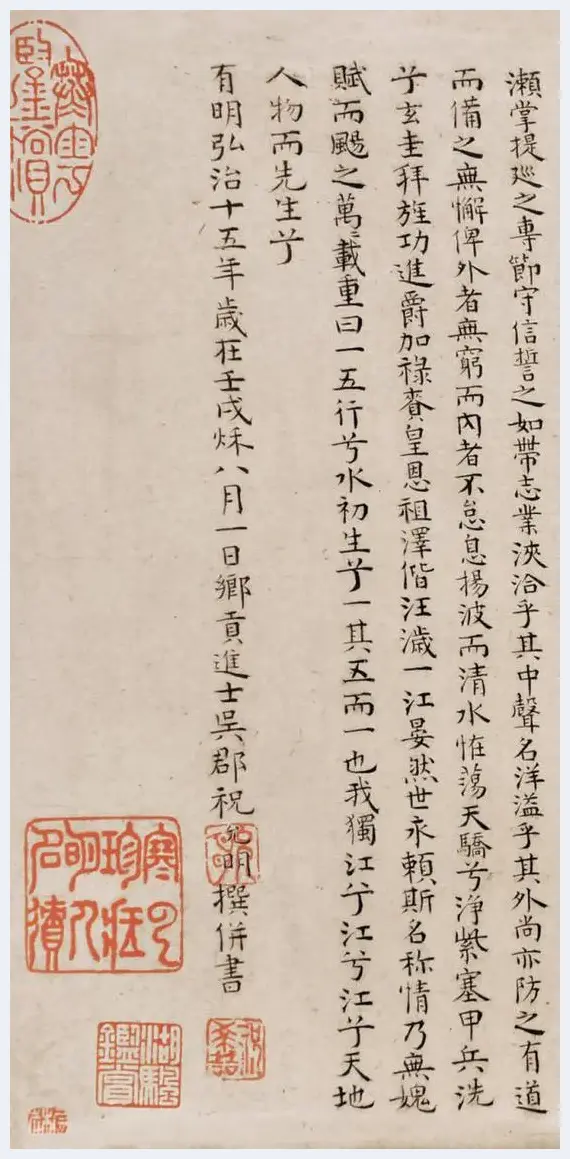 瀨掌提巡之專節守信誓之如帶志業浹洽乎其中聲名洋溢乎其外尚亦防之有道
而備之無懈俾外者無窮而內者不怠息揚波而清水恠蕩天驕兮淨紫塞甲兵洗
兮玄圭拜旌功進爵加祿賚皇恩祖澤偕汪濊一江晏然世永賴斯名称情乃無媿
賦而颺之萬〻載重曰一五行兮水初生兮一其五而一也我獨江兮江兮江兮天地
人物而先生兮
有明弘治十五年歲在壬戌秌八月一日鄉貢進士吳郡祝允明撰併書